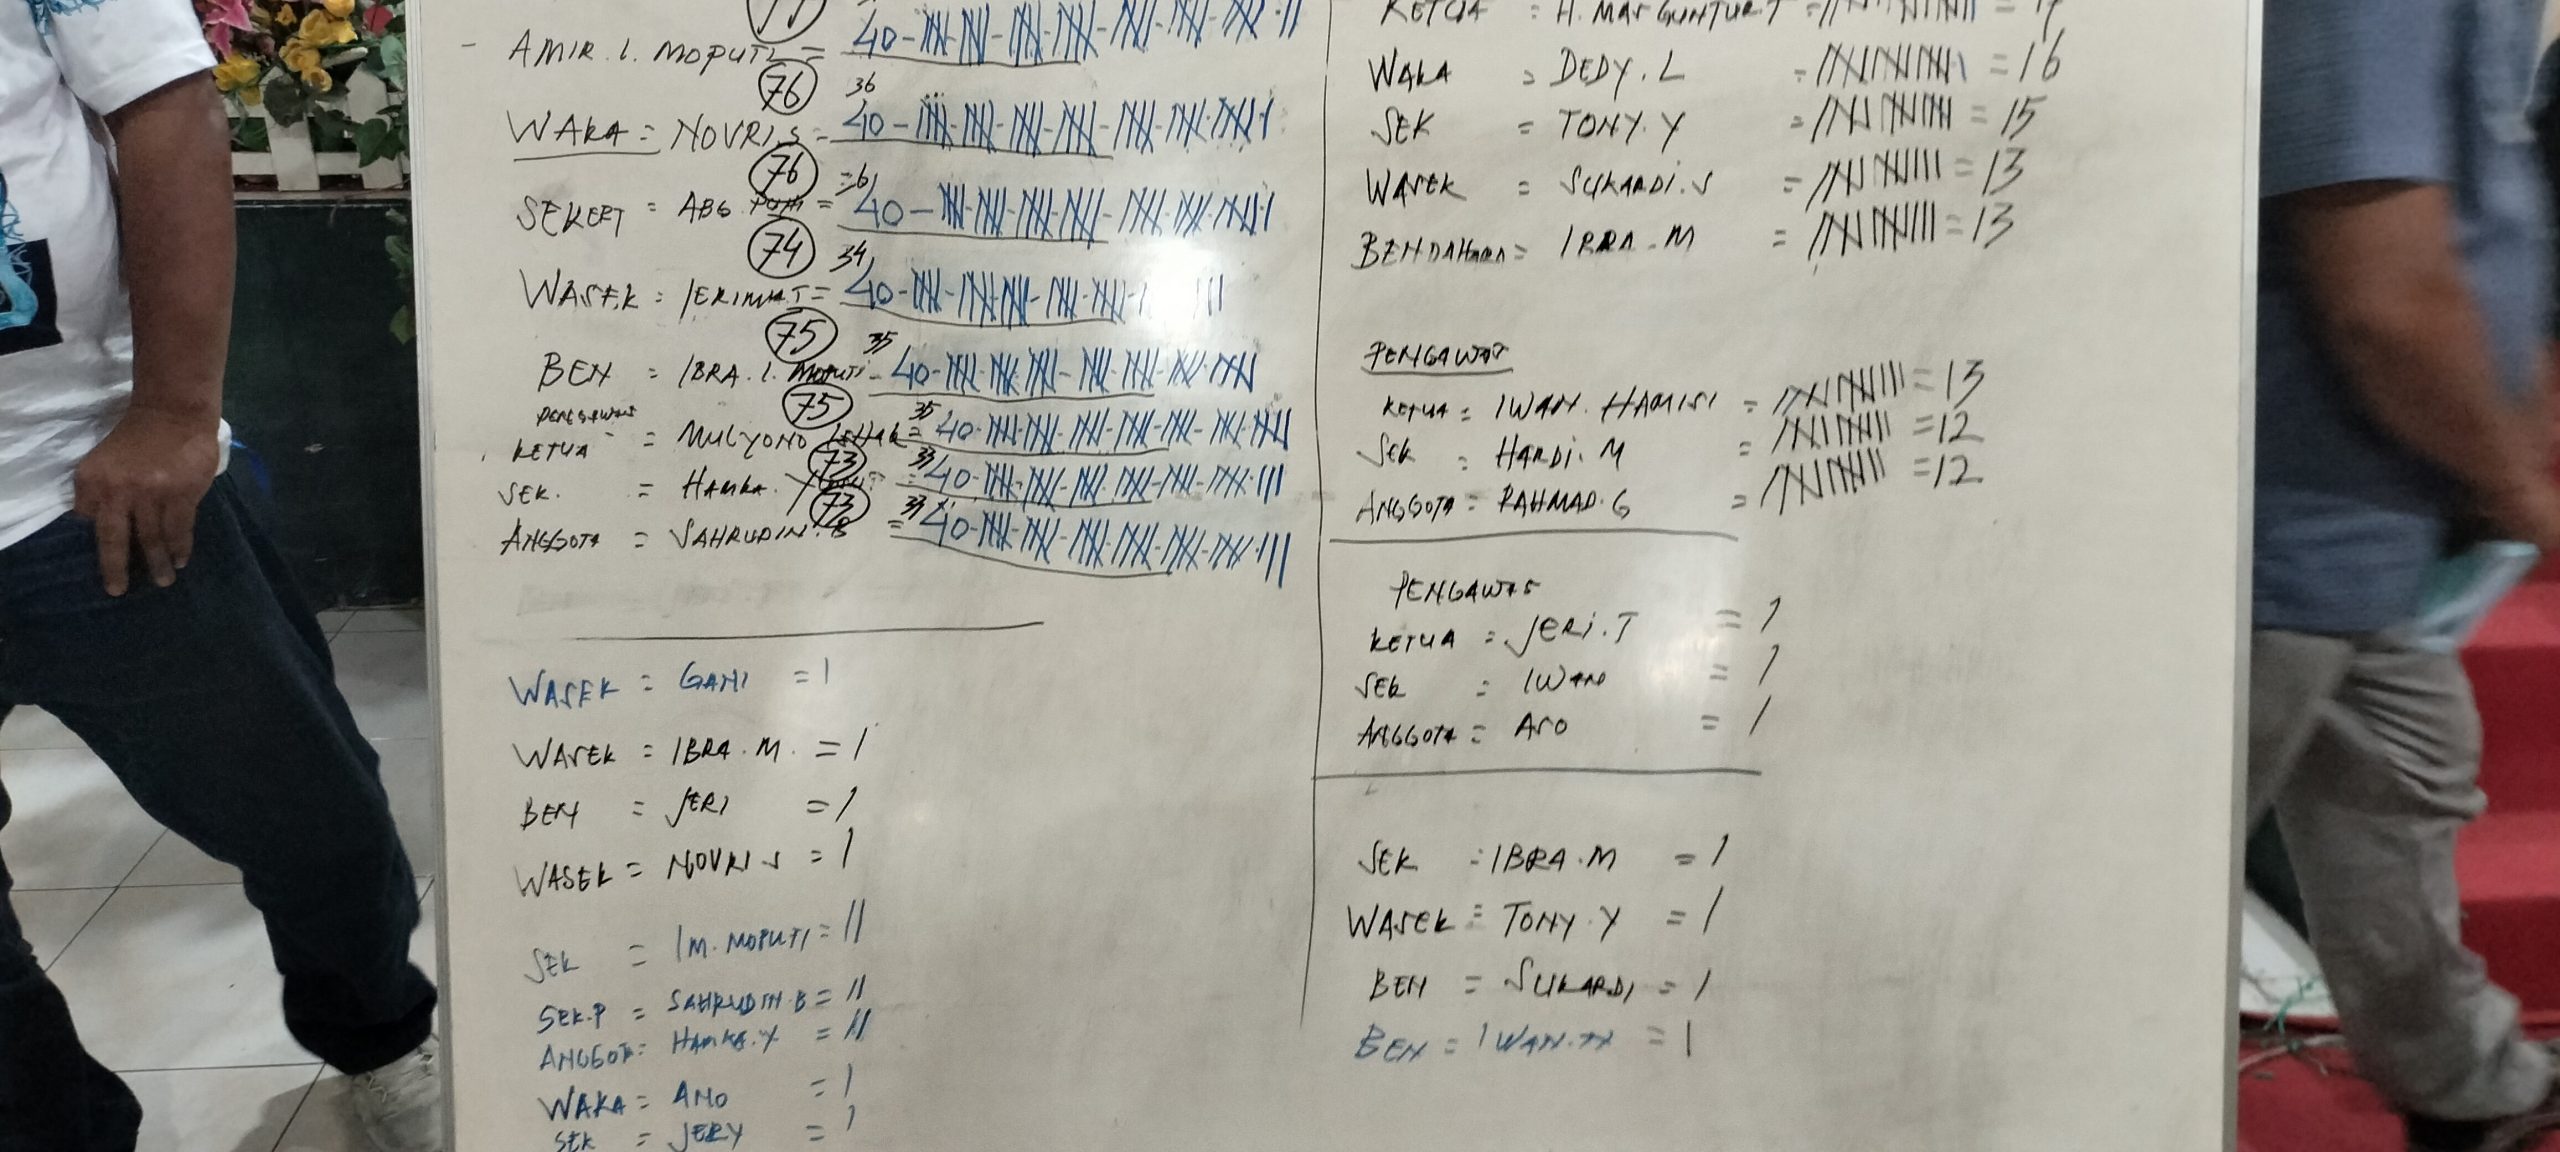 AMIR. I. MOPUTI = 40
76 36
WAKA = NOVRI.S = 40
76
SEKERT = ABG = 40
74 34
WASEK = = 40
75 35
BEN = IBRA. I. MOPUTI - 40
75 35
PENGAWAS
KETUA = MULYONO = 40
73 33
SEK. = HAMKA. = 40
73 33
ANGGOTA = SAHRUDIN. B = 40
WASEK = GANI = I
WASEK = IBRA. M. = I
BEN = JERI = I
WASEK = NOVRI S = I
SEK = IM. MOPUTI = II
SEK.P = SAHRUDIN. B = II
ANGGOTA = HAMKA. Y = II
WAKA = ANO = I
SEK = JERY = I
KETUA = H. MAS GUNTUR.T =
WAKA = DEDY. L = 16
SEK = TONY. Y = 15
WASEK = SUKARDI. S = 13
BENDAHARA = IBRA. M = 13
PENGAWAS
KETUA = IWAN. HAMISI = 13
SEK = HARDI. M = 12
ANGGOTA = RAHMAD. G = 12
PENGAWAS
KETUA = JERI. T = 1
SEK = IWAN = 1
ANGGOTA = = 1
SEK = IBRA. M = 1
WASEK = TONY. Y = 1
BEN = SUKARDI = 1
BEN = IWAN. = 1